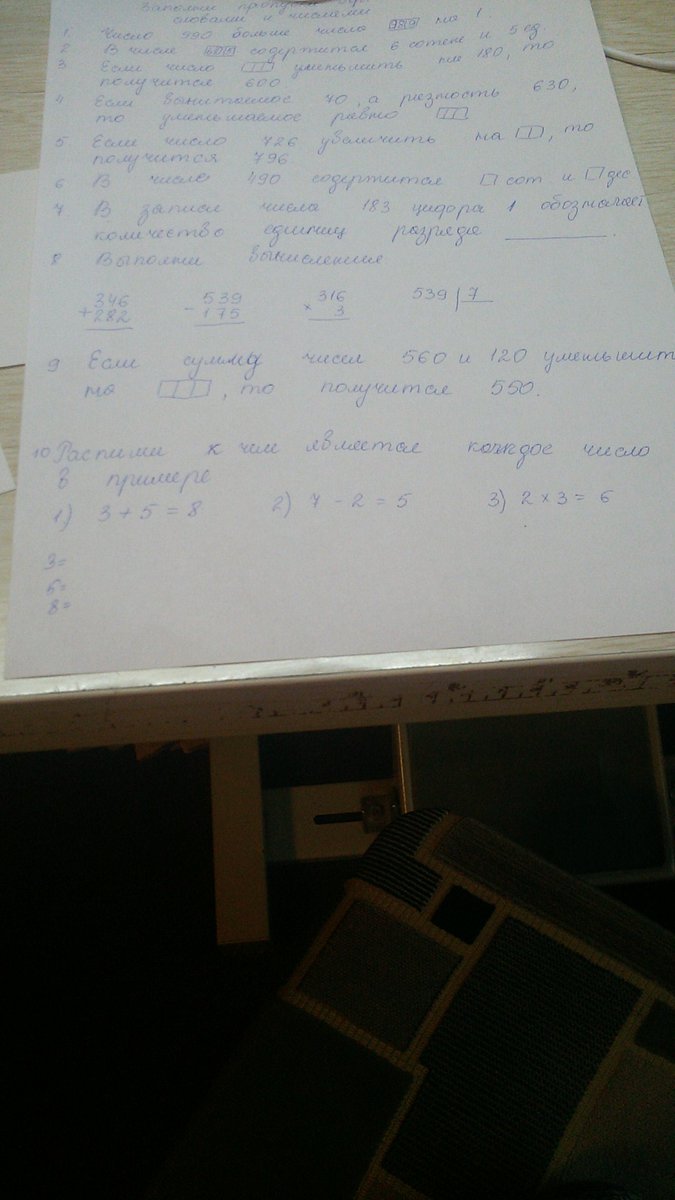 Заполни пропуски
словами и числами
1. Число 990 больше числа 989 на 1.
2 В числе 605 содержится 6 сотен и 5 ед
3 Если число уменьшить на 180, то
получится 600
4 Если вычитаемое 70, а разность 630,
то уменьшаемое равно
5. Если число 726 увеличить на , то
получится 796.
6 В числе 490 содержится □ сот и □ дес
7 В записи числа 183 цифра 1 обозначает
количество единиц разряда ________.
8 Выполни вычисления
346 539 316 539 | 7
+ 282 - 175 × 3
9 Если сумму чисел 560 и 120 уменьшит
на , то получится 550.
10 Распиши к чем является каждое число
в примере
1) 3 + 5 = 8 2) 7 - 2 = 5 3) 2 × 3 = 6
3=
5=
8=